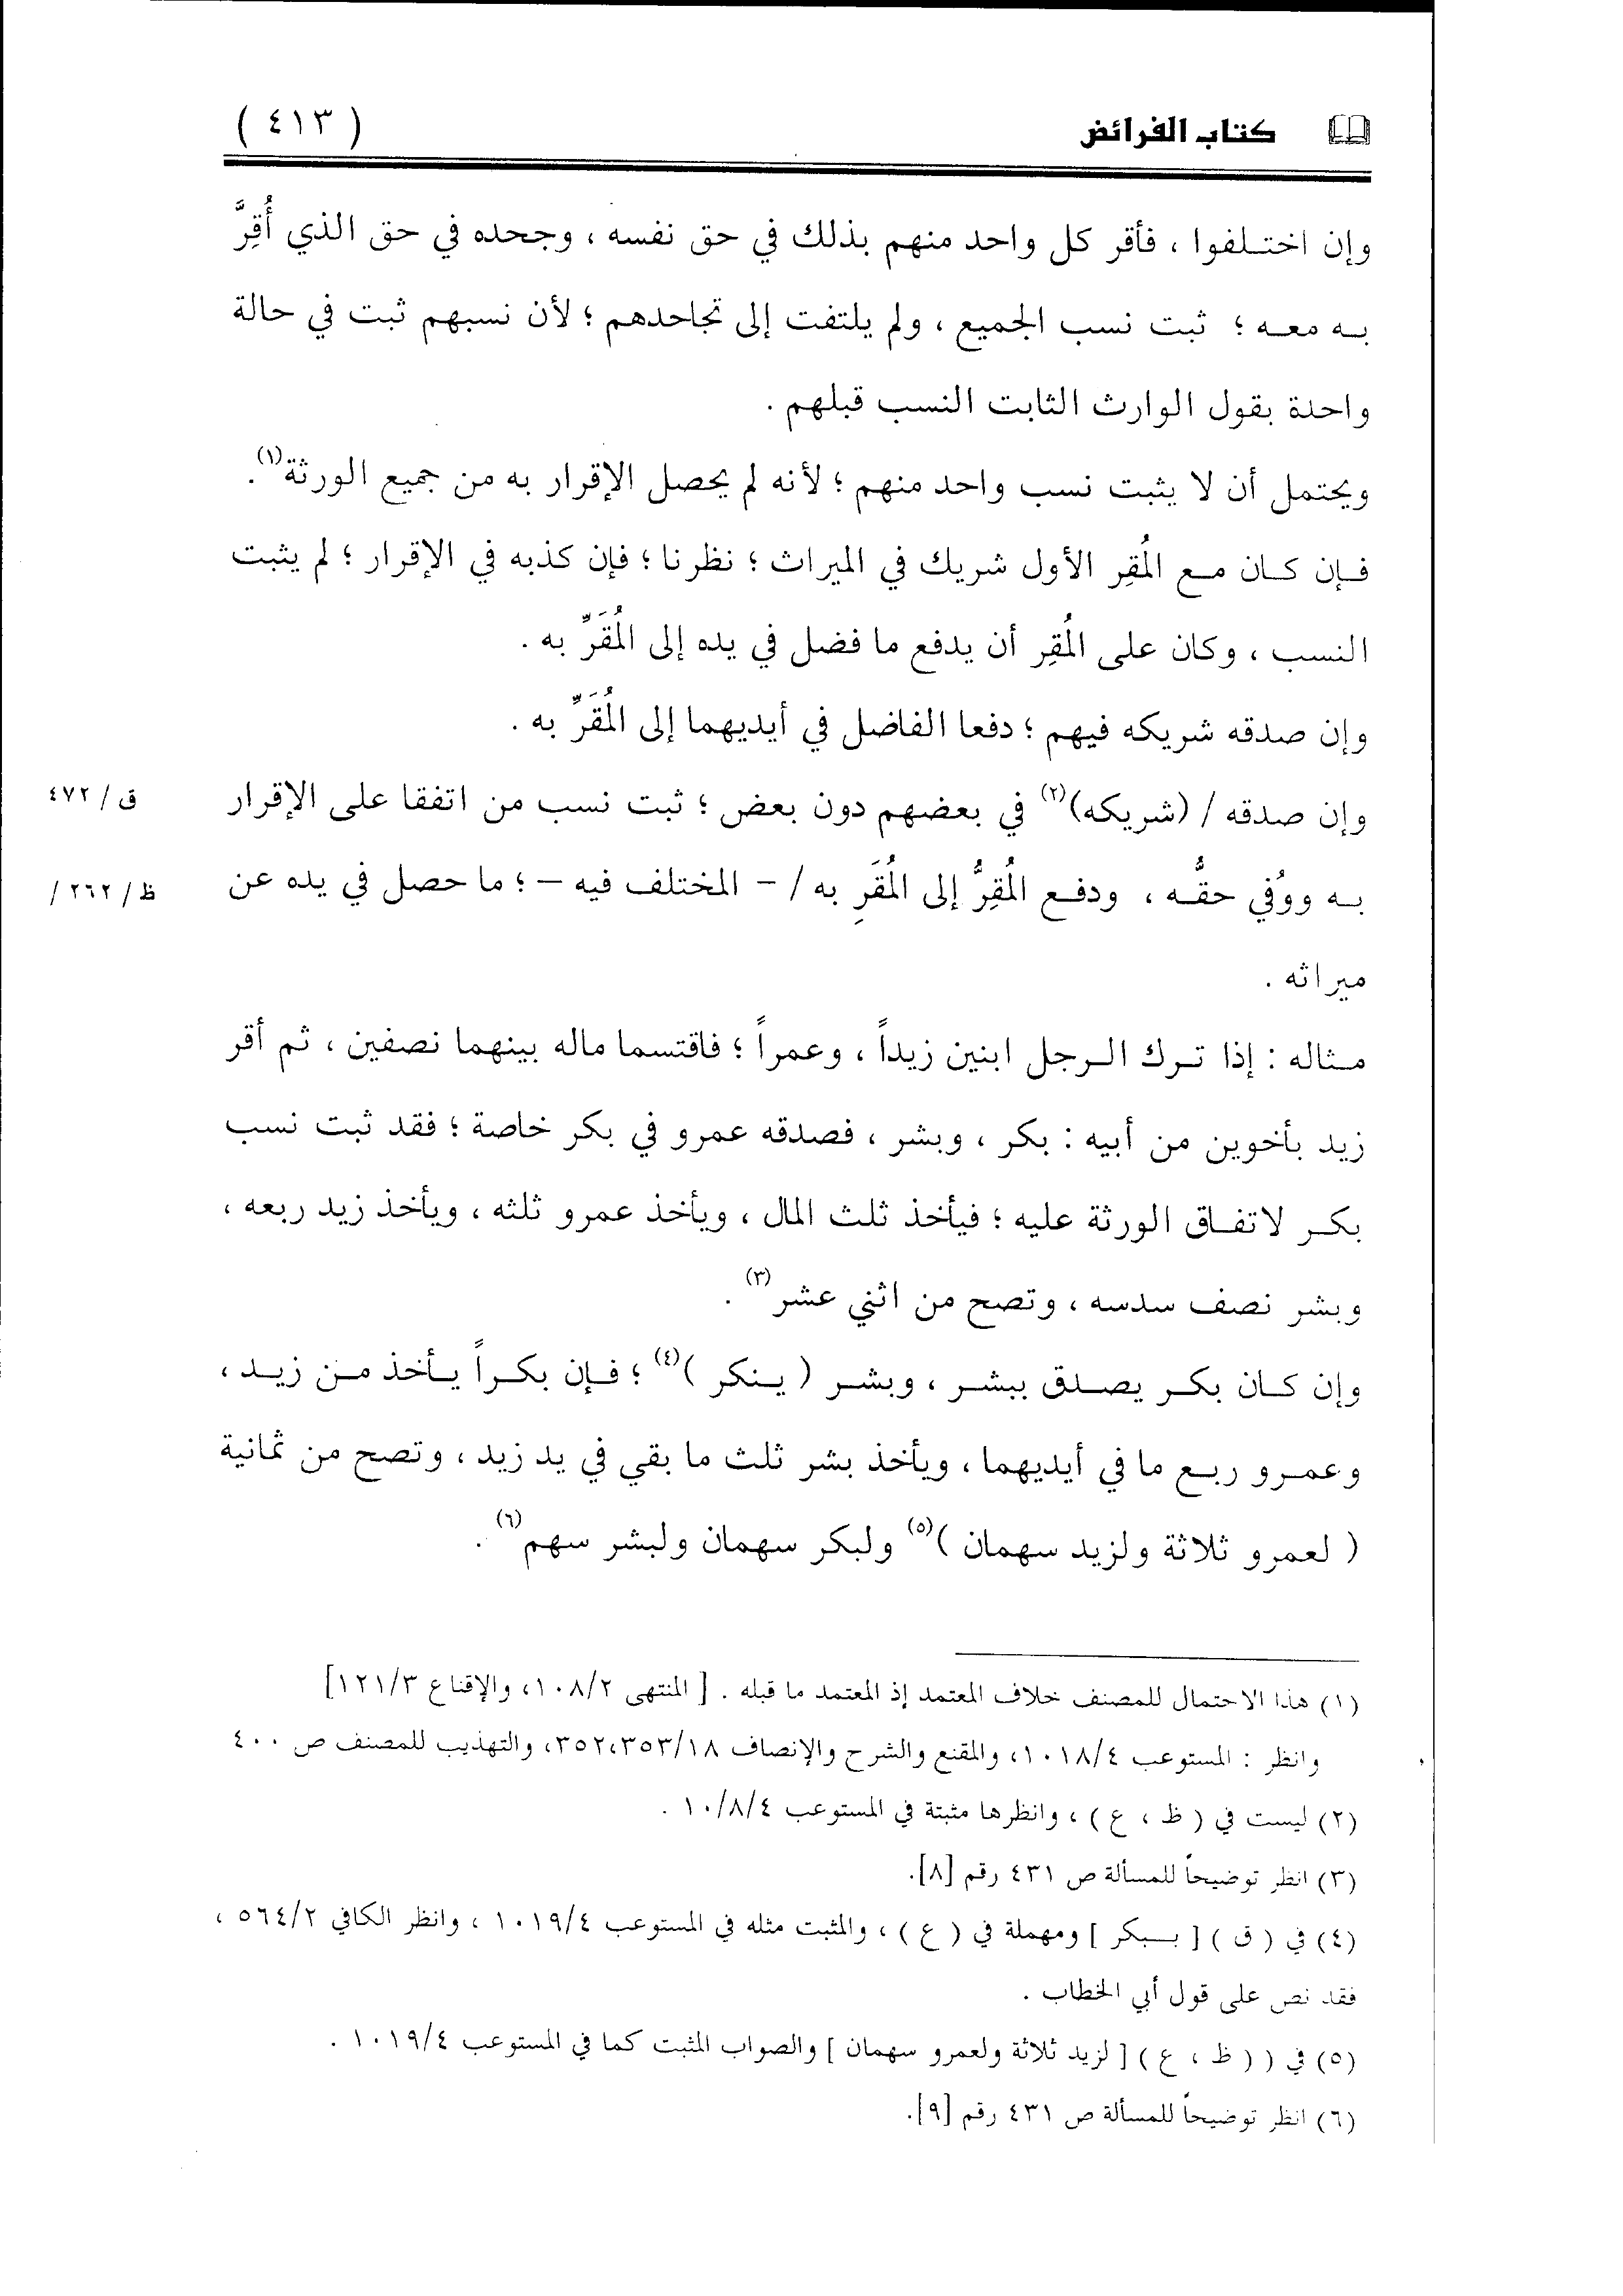 كتاب الفرائض
( ٤١٣ )
وإن اختلفوا ، فأقر كل واحد منهم بذلك في حق نفسه ، وجحده في حق الذي أُقِرَّ
به معه ؛ ثبت نسب الجميع ، ولم يلتفت إلى تجاحدهم ؛ لأن نسبهم ثبت في حالة
واحدة بقول الوارث الثابت النسب قبلهم .
ويحتمل أن لا يثبت نسب واحد منهم ؛ لأنه لم يحصل الإقرار به من جميع الورثة(١).
فإن كان مع المُقِر الأول شريك في الميراث ؛ نظرنا ؛ فإن كذبه في الإقرار ؛ لم يثبت
النسب ، وكان على المُقِر أن يدفع ما فضل في يده إلى المُقَرِّ به .
وإن صدقه شريكه فيهم ؛ دفعا الفاضل في أيديهما إلى المُقَرِّ به .
وإن صدقه / (شريكه)(٢) في بعضهم دون بعض ؛ ثبت نسب من اتفقا على الإقرار
ق / ٤٧٢
به ووُفي حقُّه ، ودفع المُقِرُّ إلى المُقَرِ به / – المختلف فيه – ؛ ما حصل في يده عن
ظ / ٢٦٢ /
ميراثه .
مثاله : إذا ترك الرجل ابنين زيداً ، وعمراً ؛ فاقتسما ماله بينهما نصفين ، ثم أقر
زيد بأخوين من أبيه : بكر ، وبشر ، فصدقه عمرو في بكر خاصة ؛ فقد ثبت نسب
بكر لاتفاق الورثة عليه ؛ فيأخذ ثلث المال ، ويأخذ عمرو ثلثه ، ويأخذ زيد ربعه ،
وبشر نصف سدسه ، وتصح من اثني عشر(٣) .
وإن كان بكر يصدق ببشر ، وبشر ( ينكر )(٤) ؛ فإن بكراً يأخذ من زيد ،
وعمرو ربع ما في أيديهما ، ويأخذ بشر ثلث ما بقي في يد زيد ، وتصح من ثمانية
( لعمرو ثلاثة ولزيد سهمان )(٥) ولبكر سهمان ولبشر سهم(٦) .
(١) هذا الاحتمال للمصنف خلاف المعتمد إذ المعتمد ما قبله . [ المنتهى ١٠٨/٢، والإقناع ١٢١/٣]
وانظر : المستوعب ١٠١٨/٤، والمقنع والشرح والإنصاف ٣٥٢،٣٥٣/١٨، والتهذيب للمصنف ص ٤٠٠
(٢) ليست في ( ظ ، ع ) ، وانظرها مثبتة في المستوعب ١٠/٨/٤ .
(٣) انظر توضيحاً للمسألة ص ٤٣١ رقم [٨].
(٤) في ( ق ) [ بسبكر ] ومهملة في ( ع ) ، والمثبت مثله في المستوعب ١٠١٩/٤ ، وانظر الكافي ٥٦٤/٢ ،
فقد نص على قول أبي الخطاب .
(٥) في ( ( ظ ، ع ) [ لزيد ثلاثة ولعمرو سهمان ] والصواب المثبت كما في المستوعب ١٠١٩/٤ .
(٦) انظر توضيحاً للمسألة ص ٤٣١ رقم [٩].